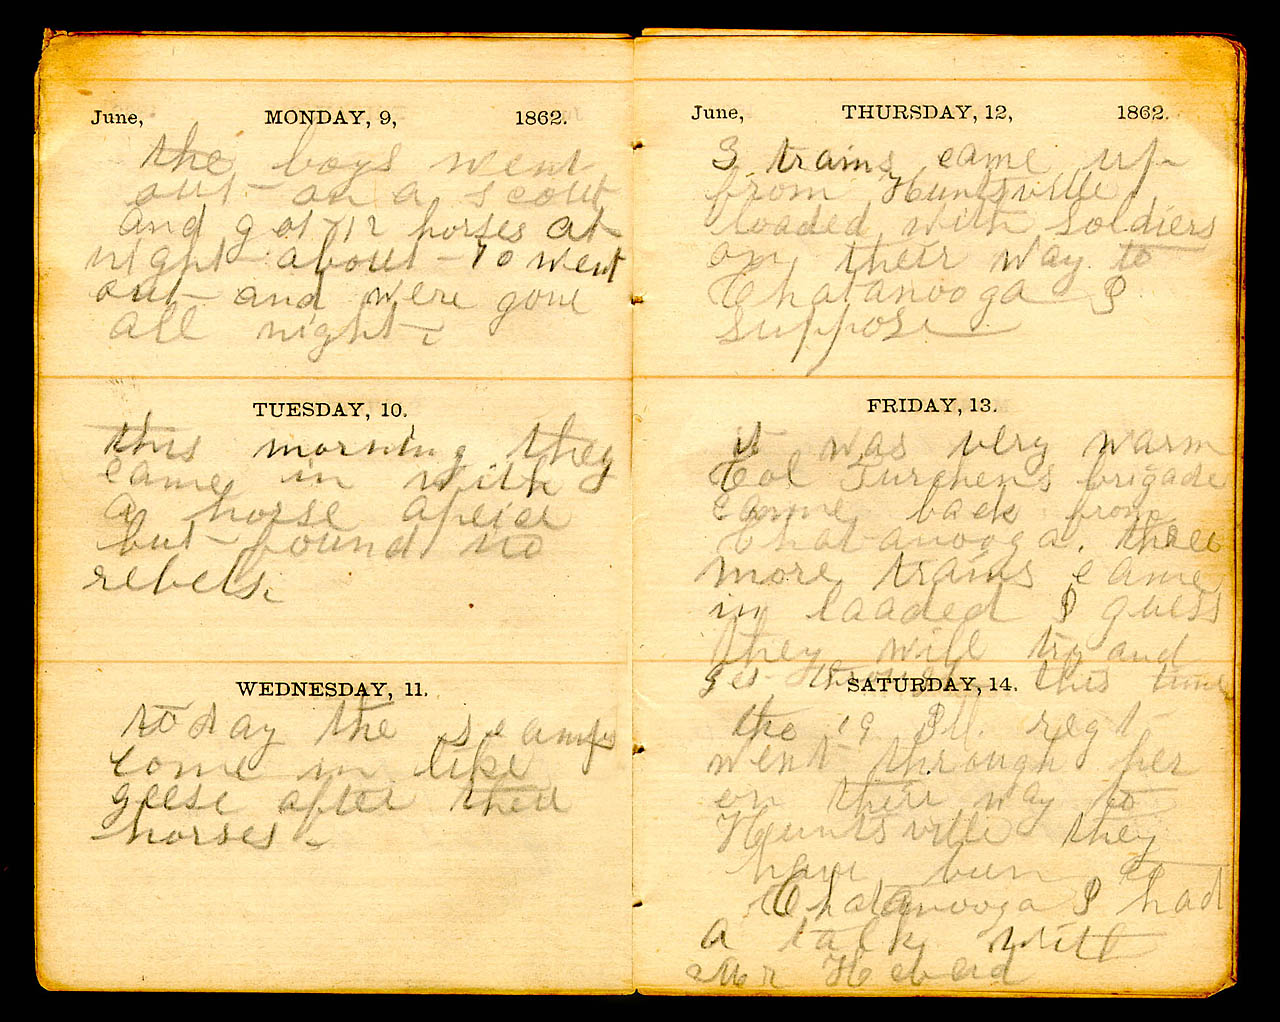 June, MONDAY, 9, 1862.
the boys went
out on a scout
and got 12 horses at
night about 70 went
out and were gone
all night
TUESDAY, 10.
this morning they
came in with
a horse apeice
but found no
rebels.
WEDNESDAY, 11.
today the scamps
come in like
geese after their
horses
June, THURSDAY, 12, 1862.
3 trains came up
from Huntsville
loaded with Soldiers
on their way to
Chatanooga I
suppose
FRIDAY, 13.
it was very warm
Col Turchens brigade
came back from
Chatanooga. three
more trains came
in loaded I guess
they will try and
get through this time
SATURDAY, 14.
the 19 Ill. regt
went through her
on their way to
Huntsville they
have bun to
Chatanooga I had
a talk with
Mr